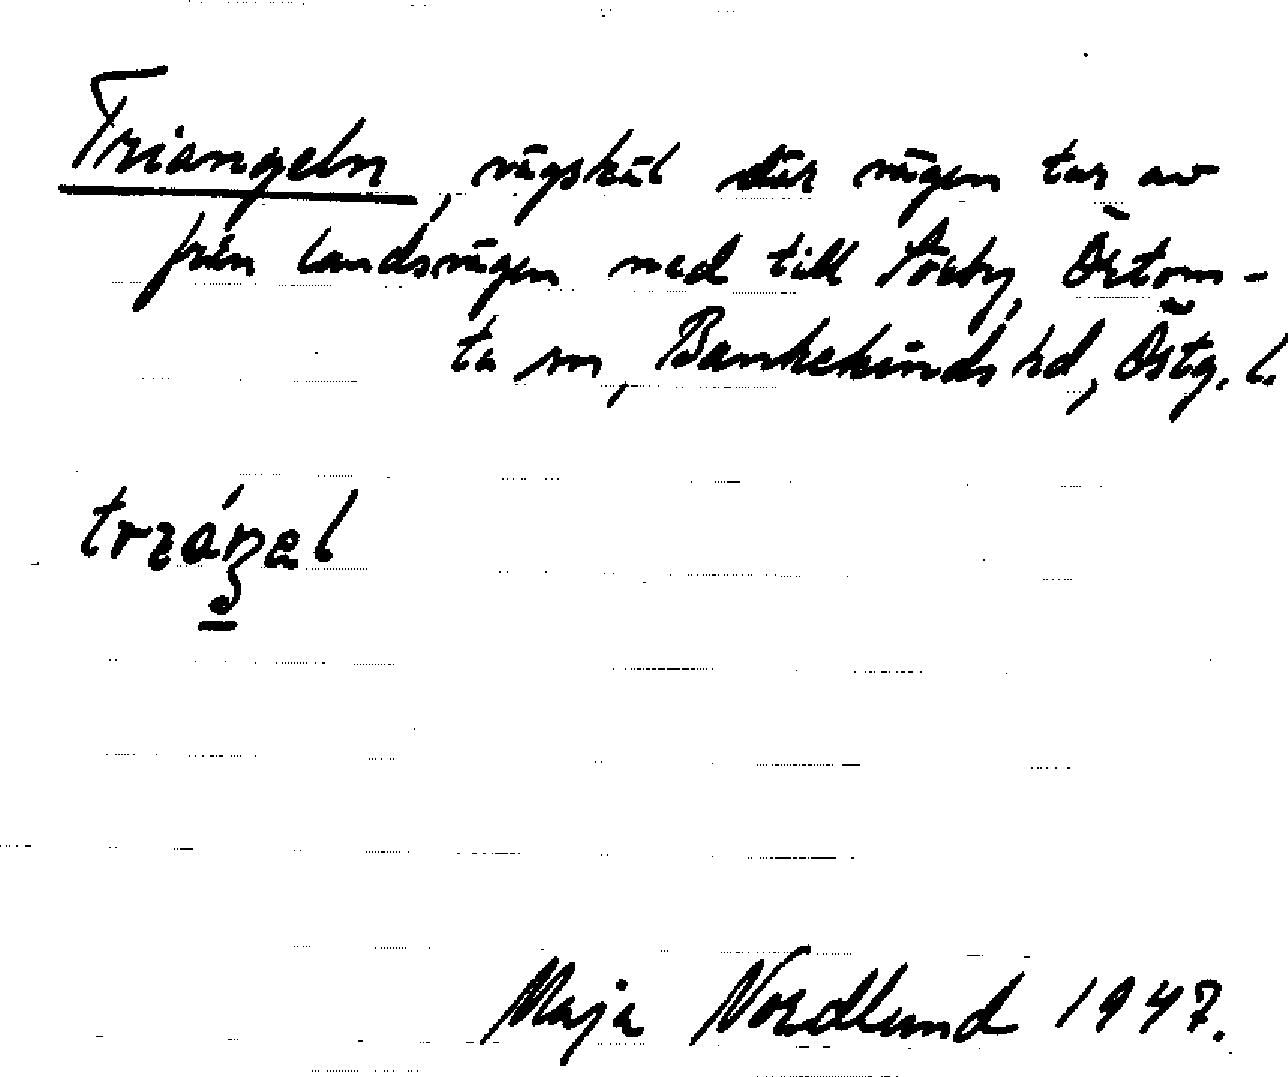 Triangeln, vägskäl där vägen tar av
från landsvägen ned till Åsby, Örtom-
ta sn, Bankekinds hd, Östg. l.
Maja Nordlund 1947.